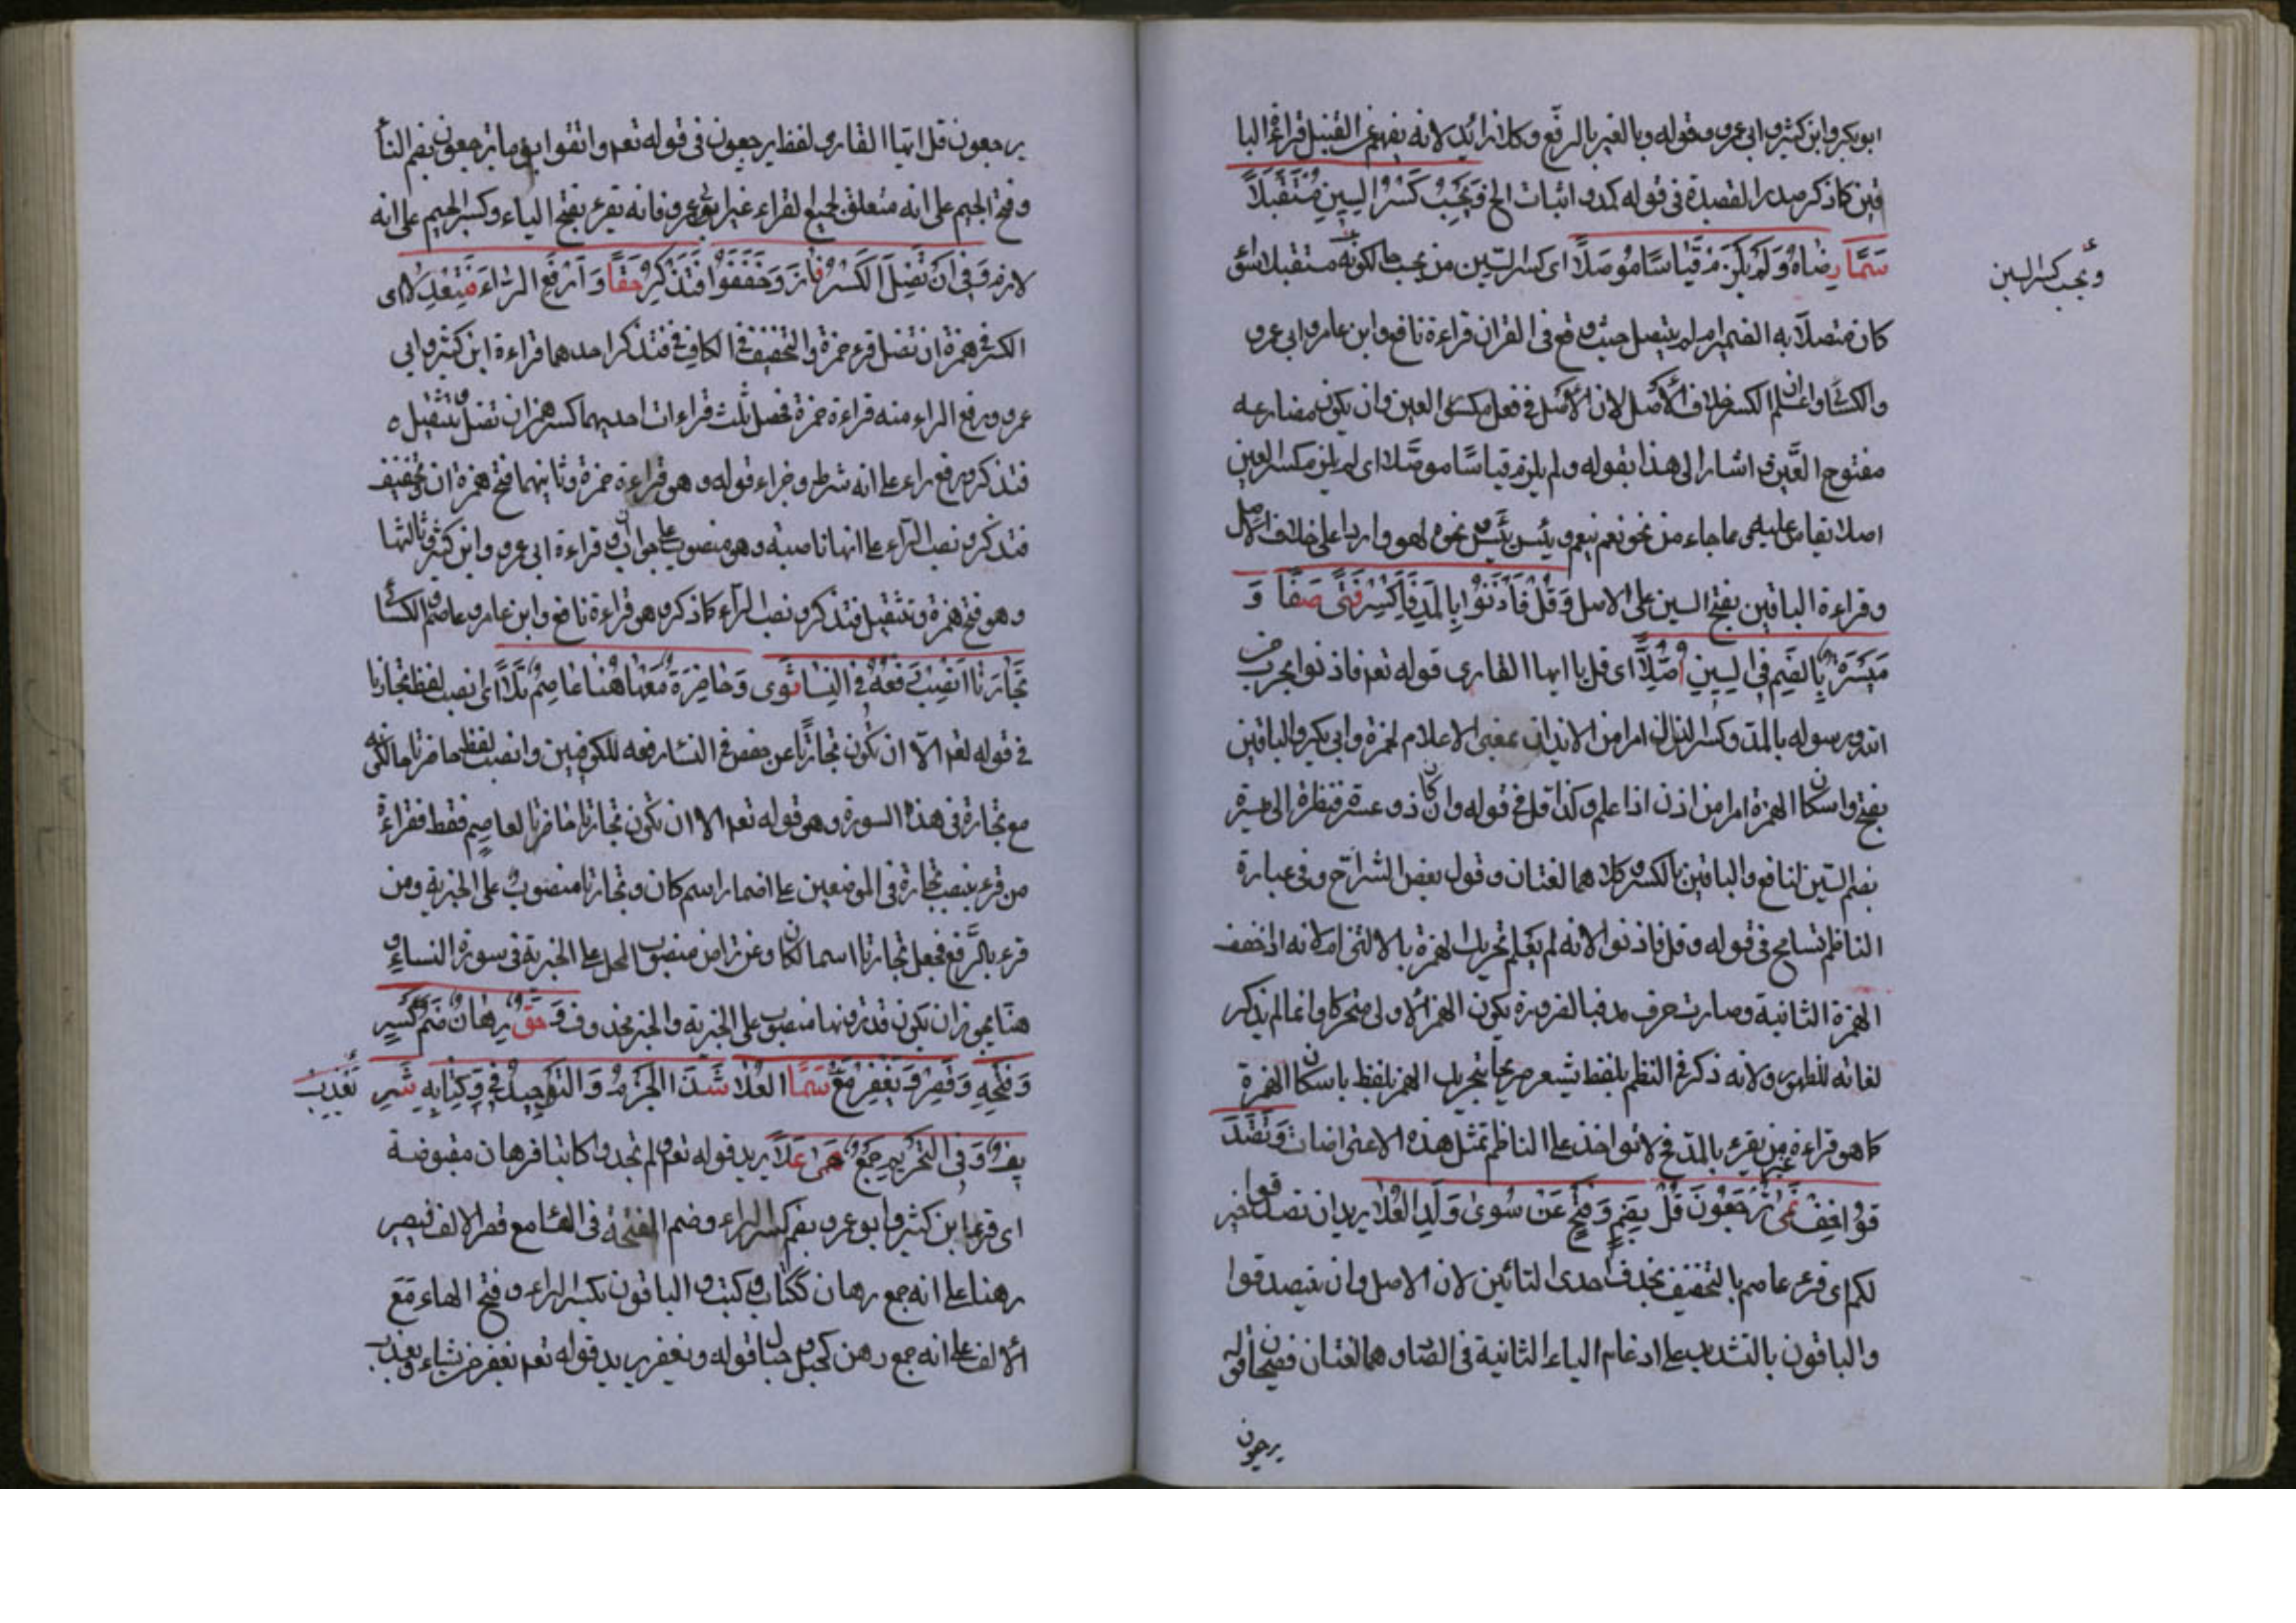 ابو بكر وابن كثير وابى عمرو وقوله وبالغير بالرفع وكلا زائد لانه يفهم من القبيل قراءة البا
قين كما ذكر صدر القصيدة فى قوله كمد واثبات الخ وَيَحْسِبُ كَسْرُ السِّينِ مُسْتَقْبَلاً
سَمَا رِضَاهُ وَلَمْ يَلْزَمْ قِيَاسًا مُوَصَّلاً اى كسر السين من يحسب حال كونه مستقبلا سوآء
كان متصلا به الضمير ام لم يتصل حيث وقع فى القران قراءة نافع وابن عامر وابى عمرو
والكسائى واعلم ان الكسر خلاف الاصل لان الاصل فى فعل مكسور العين وان يكون مضارعه
مفتوح العين واشار الى هذا بقوله ولم يلزم قياسا موصلا اى لم يلزم كسر العين
اصلا يقاس عليه مما جاء من نحو نعم ينعم ويئس ييئس نحوه لهو وارد على خلاف الاصل
وقراءة الباقين بفتح السين على الاصل وَقُلْ فَأْذَنُوا بِالْمَدِّ وَاكْسِرْ فَتًى صَفَا وَ
مَيْسَرَةٍ بِالضَّمِّ فِى السِّينِ اُصِّلاَ اى قل يا ايها القارى قوله تعم فاذنوا بحرب من
الله ورسوله بالمد وكسر الذال امر من الايذان بمعنى الاعلام لحمزة وابى بكر والباقين
بفتح واسكان الهمزة امر من اذن اذا علم وكذا قل فى قوله وان كان ذو عسرة فنظرة الى ميسرة
بضم السين لنافع والباقين بالكسر وكلاهما لغتان وقول بعض الشراح وفى عبارة
الناظم تسامح فى قوله وقل فاذنوا لانه لم يعلم تحريك الهمزة بالالتزام لانه اذ خفف
الهمزة الثانية وصارت حرف مد فبالضرورة يكون الهمز الاولى متحركا وانما لم يذكر
لغاته للظهور ولانه ذكر فى النظم بلفظ يشعر صريحا بتحريك الهمز بلفظ باسكان الهمزة
كما هو قراءة من غير يقرء بالمد فح لا نؤاخذ على الناظم بمثل هذه الاعتراضات وَتَصَّدَّ
قُوا خِفْ نَمَى تُرْجَعُونَ قُلْ بِضَمٍّ وَفَتْحٍ عَنْ سِوَى وَلَدِ الْعُلاَ يريد ان تصدقوا خير
لكم اى قرء عاصم بالتخفيف بحذف احدى التائين لان الاصل وان تتصدقوا
والباقون بالتشديد على ادغام التاء الثانية فى الصاد وهما لغتان فصيحان قوله
يرجعون
ويحسب كسر السين
يرجعون قل ايها القارى لفظ يرجعون فى قوله تعم واتقوا يوما ترجعون بضم التاء
وفتح الجيم على انه متعلق لجميع القراء غير ابى عمرو فانه يقرء بفتح الياء وكسر الجيم على انه
لازم وَفِى اَنْ تَضِلَّ الْكَسْرُ فَازَ وَخَفَّفُوا فَتُذْكِرَ حَقًّا وَارْفَعِ الرَّاءَ فَتَعْدِلاَ اى
الكسر فى همزة ان تضل قرء حمزة والتخفيف فى الكاف فى فتذكر احدهما قراءة ابن كثير وابى
عمرو ورفع الراء منه قراءة حمزة فحصل ثلث قراءات احديهما كسر همز ان تضل وتثقيل ه
فتذكر ورفع راء على انه شرط وجزاء قوله وهو قراءة حمزة وثانيهما فتح همزة ان وتخفيف
فتذكر ونصب الراء على انها ناصبة وهو منصوب على جواب ان وقراءة ابى عمرو وابن كثير وثالثها
وهو فتح همزة وتثقيل فتذكر ونصب الراء كما ذكر وهو قراءة نافع وابن عامر وعاصم والكسائى
تِجَارَةً اَنْصِبْ رَفْعَهُ فِى النِّسَا ثَوَى وَحَاضِرَةً مَعْهَا هُنَا عَاصِمٌ تَلاَ اى نصب لفظ تجارة
فى قوله تعم الا ان تكون تجارة عن حفص فى النساء رفعه للكوفيين وانصب لفظ حاضرة حال كونه
مع تجارة فى هذه السورة وهى قوله تعم الا ان تكون تجارة حاضرة لعاصم فقط فقراءة
من قرء بنصب تجارة فى الموضعين على اضمار اسم كان وتجارة منصوب على الخبرية ومن
قرء بالرفع فجعل تجارة اسما لكان وعن تراض منصوب المحل على الخبرية فى سورة النساء و
هنا يجوز ان يكون تديرونها منصوب على الخبرية والخبر محذوف وَحَقٌّ رِهَانٌ ضَمُّ كَسْرٍ
وَفَتْحِهِ وَقَصْرٌ وَيَغْفِرْ مَعْ سَمَا الْعُلاَ شَذَا الْجَزْمُ وَالتَّوْحِيدُ فِى وَكِتَابِهِ شَرِ يُعَذِّبْ
يفٌ وَفِى التَّحْرِيمِ جَمْعُ حِمًى عَلاَ يريد قوله تعم ولم تجدوا كاتبا فرهان مقبوضة
اى قرء ابن كثير وابو عمرو بضم كسر الراء وضم الفتحة فى الهاء مع قصر الالف فيصير
رهنا على انه جمع رهان ككتاب وكتب والباقون بكسر الراء وفتح الهاء مع
الالف على انه جمع رهن كحبل وحبال قوله ويغفر يريد قوله تعم فيغفر لمن يشاء ويعذب